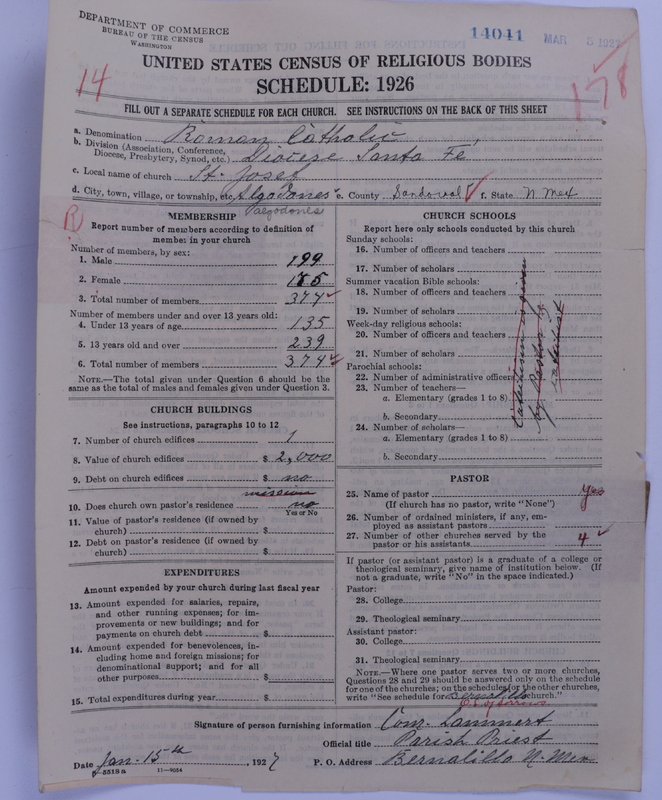 DEPARTMENT OF COMMERCE
BUREAU OF THE CENSUS
WASHINGTON
14041
MAR 5 192
UNITED STATES CENSUS OF RELIGIOUS BODIES
SCHEDULE: 1926
14
178
FILL OUT A SEPARATE SCHEDULE FOR EACH CHURCH. SEE INSTRUCTIONS ON THE BACK OF THIS SHEET
a. Denomination Roman Catholic
b. Division (Association, Conference, Diocese, Presbytery, Synod, etc.) Diocese Santa Fé
c. Local name of church St. Josef
d. City, town, village, or township, etc. Algodones e. County Sandoval f. State N. Mex
R
MEMBERSHIP
Report number of members according to definition of member in your church
Number of members, by sex:
1. Male 199
2. Female 175
3. Total number of members 374
Number of members under and over 13 years old:
4. Under 13 years of age 135
5. 13 years old and over 239
6. Total number of members 374
NOTE.—The total given under Question 6 should be the same as the total of males and females given under Question 3.
CHURCH BUILDINGS
See instructions, paragraphs 10 to 12
7. Number of church edifices 1
8. Value of church edifices $ 2,000
9. Debt on church edifices $ no
mission
10. Does church own pastor's residence no
Yes or No
11. Value of pastor's residence (if owned by church) $
12. Debt on pastor's residence (if owned by church) $
EXPENDITURES
Amount expended by your church during last fiscal year
13. Amount expended for salaries, repairs, and other running expenses; for improvements or new buildings; and for payments on church debt $
14. Amount expended for benevolences, including home and foreign missions; for denominational support; and for all other purposes $
15. Total expenditures during year $
CHURCH SCHOOLS
Report here only schools conducted by this church
Sunday schools:
16. Number of officers and teachers
17. Number of scholars
Summer vacation Bible schools:
18. Number of officers and teachers
19. Number of scholars
Week-day religious schools:
20. Number of officers and teachers
21. Number of scholars
Parochial schools:
22. Number of administrative officers
23. Number of teachers—
a. Elementary (grades 1 to 8)
b. Secondary
24. Number of scholars—
a. Elementary (grades 1 to 8)
b. Secondary
Catechism is given
by Pastor
PASTOR
25. Name of pastor yes
(If church has no pastor, write "None")
26. Number of ordained ministers, if any, employed as assistant pastors
27. Number of other churches served by the pastor or his assistants 4
If pastor (or assistant pastor) is a graduate of a college or theological seminary, give name of institution below. (If not a graduate, write "No" in the space indicated.)
Pastor:
28. College
29. Theological seminary
Assistant pastor:
30. College
31. Theological seminary
NOTE.—Where one pastor serves two or more churches, Questions 28 and 29 should be answered only on the schedule for one of the churches; on the schedules for the other churches, write "See schedule for Bernalillo church."
Signature of person furnishing information Conr. Lammert
Official title Parish Priest
Date Jan. 15th, 1927 P. O. Address Bernalillo N. Mex
5518a 11—9054